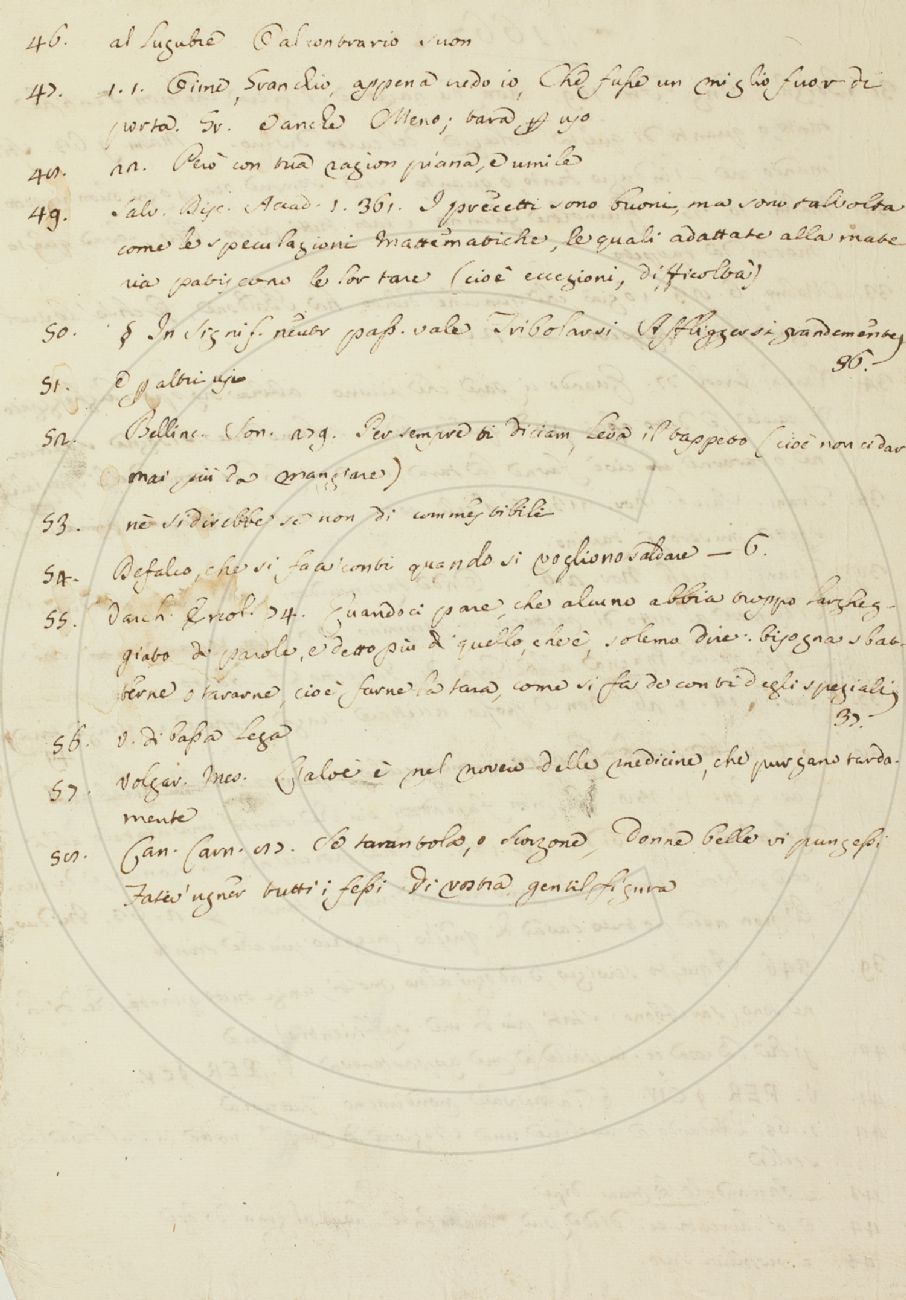 46. al lugubre E al contrario suon
47. 1. 1. Oimè, Granchio, appena credo io, Che fusse un miglio fuor di
porta. Gr. E anche Meno; tara per uso
48. 22. Però con tua ragion piana, e umile
49. Salv. Disc. Accad. 1. 361. I precetti sono buoni, ma sono talvolta
come le speculazioni Mattematiche, le quali adattate alla mate
ria patiscono le lor tare (cioè eccezioni, difficoltà)
50. § In signif. neutr pass. vale Tribolarsi Affliggersi grandemente
36.
51. E per altri usi
52. Bellinc. Son. 279. Per sempre ti diciam, leva il tappeto (cioè non ci dar
mai più da mangiare)
53. nè si direbbe se non di commestibili
54. Defalco, che si fa a' conti quando si vogliono saldare — 6.
55. Varch. Ercol. 74. Quando ci pare, che alcuno abbia troppo largheg-
giato di parole, e detto più di quello, che è, solemo dire: bisogna sbat-
terne o tararne, cioè farne la tara, come si fa de conti degli speziali
37.
56. v. di bassa lega
57. Volgar. Mes. L'aloè è nel novero delle medicine, che purgano tarda-
mente
58. Can. Carn. 87. Se tarantola, o scorzone, Donne belle vi pungessi
Fatev' ugner tutti i fessi Di vostra gentil figura